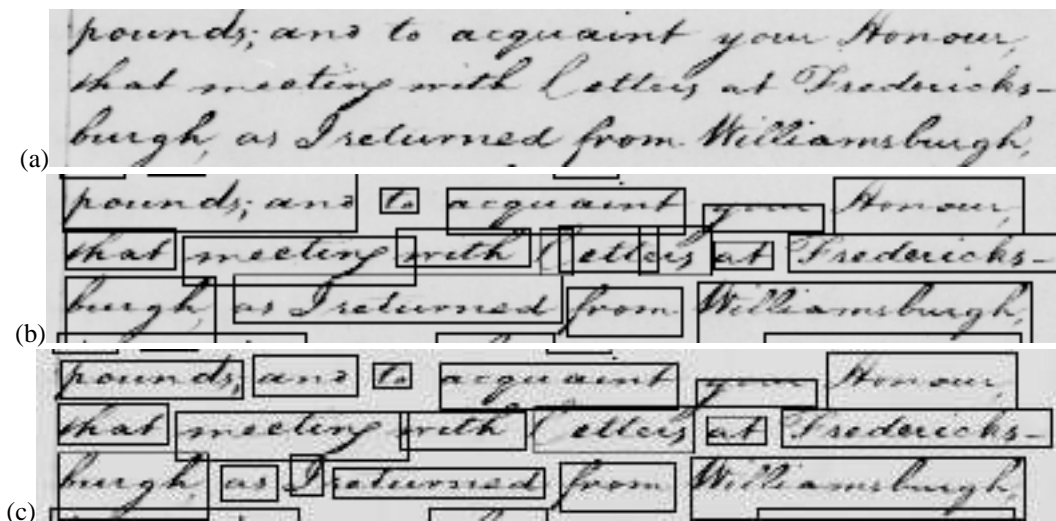 pounds; and to acquaint your Honour,
that meeting with Letters at Fredericks-
burgh, as I returned from Williamsburgh,
(a)
pounds; and to acquaint your Honour,
that meeting with Letters at Fredericks-
burgh, as I returned from Williamsburgh,
(b)
pounds; and to acquaint your Honour,
that meeting with Letters at Fredericks-
burgh, as I returned from Williamsburgh,
(c)